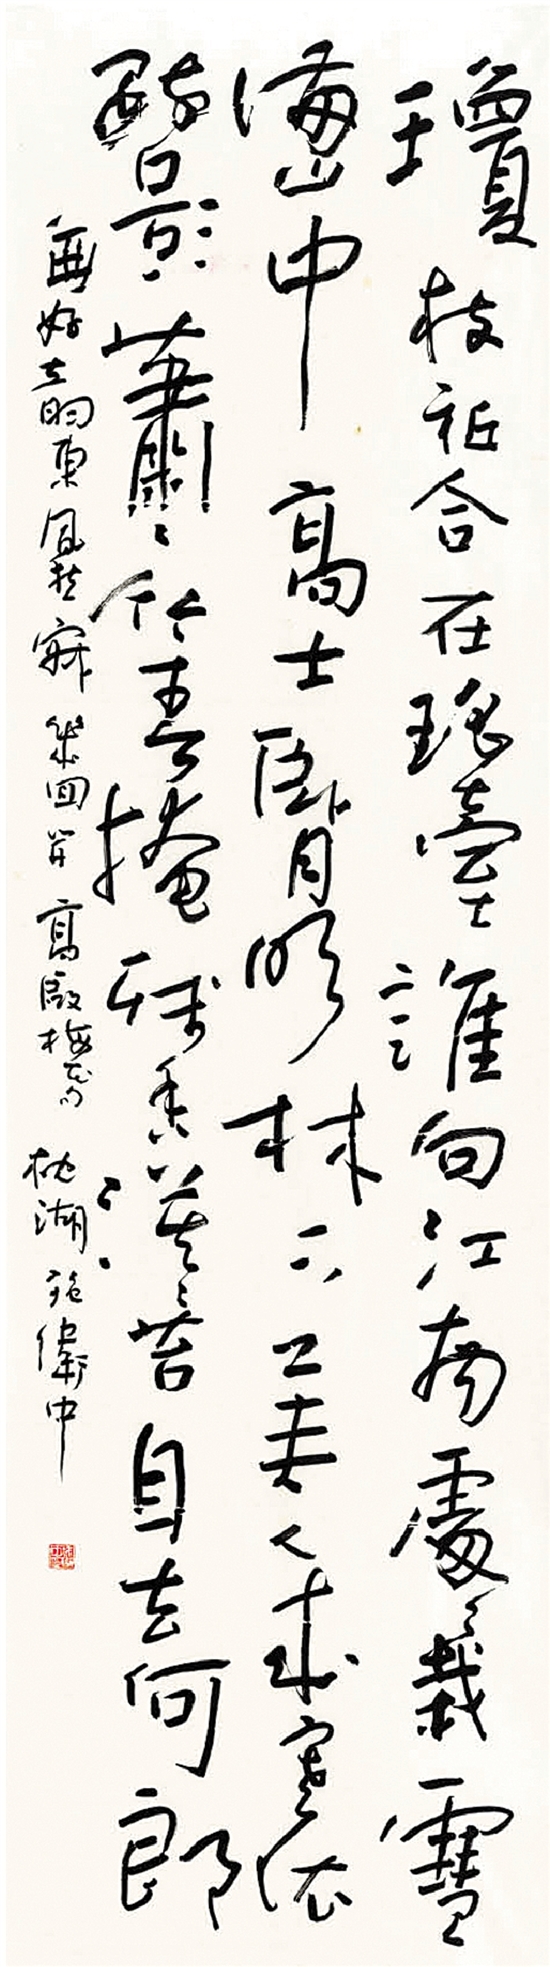 瓊枝祇合在瑤臺誰向江南處〻栽雪
滿山中高士臥月明林下美人來寒依
疏影蕭〻竹春掩殘香漠〻苔自去何郎
無好韵東風愁寂幾回開 高啟梅花 枕湖 施衛中